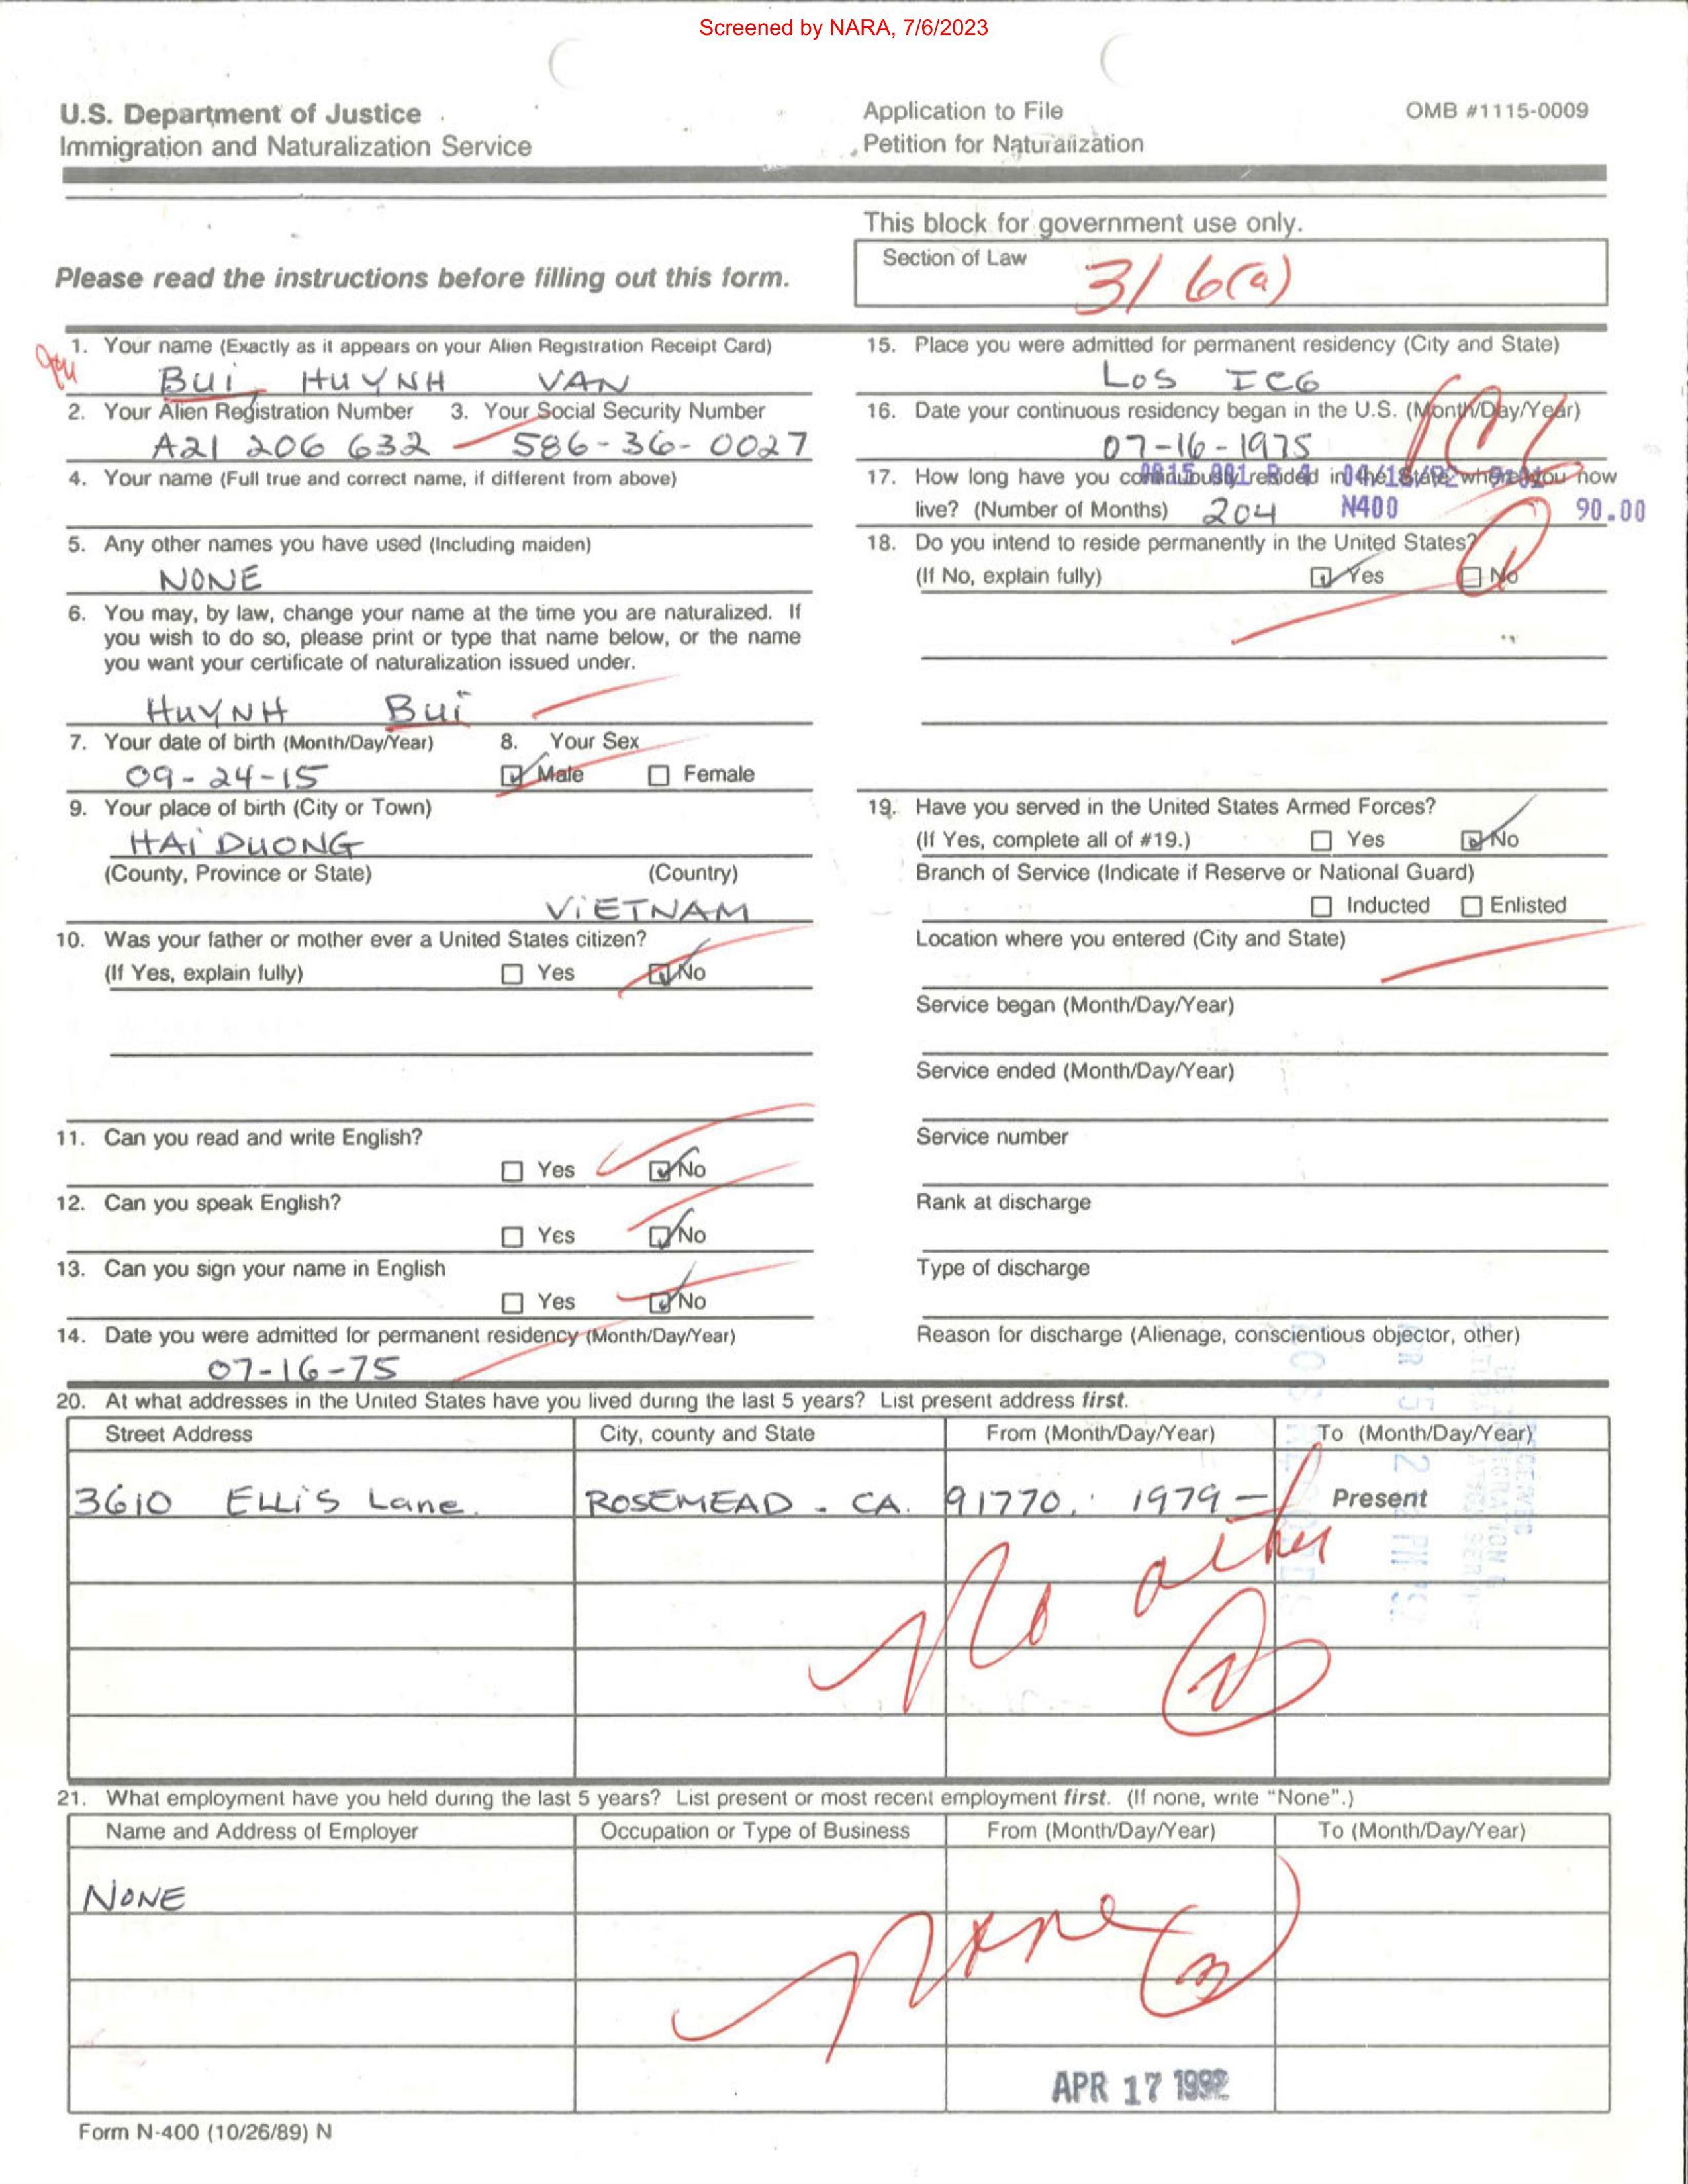 Screened by NARA, 7/6/2023
U.S. Department of Justice
Immigration and Naturalization Service
Application to File
Petition for Naturalization
OMB #1115-0009
Please read the instructions before filling out this form.
This block for government use only.
Section of Law
316(a)
1. Your name (Exactly as it appears on your Alien Registration Receipt Card)
BUI HUYNH VAN
2. Your Alien Registration Number 3. Your Social Security Number
A21 206 632 586-36-0027
4. Your name (Full true and correct name, if different from above)
5. Any other names you have used (Including maiden)
NONE
6. You may, by law, change your name at the time you are naturalized. If
you wish to do so, please print or type that name below, or the name
you want your certificate of naturalization issued under.
HUYNH BUI
7. Your date of birth (Month/Day/Year) 8. Your Sex
09-24-15 Male Female
9. Your place of birth (City or Town)
HAI DUONG
(County, Province or State) (Country)
VIETNAM
10. Was your father or mother ever a United States citizen?
(If Yes, explain fully) Yes No
11. Can you read and write English?
Yes No
12. Can you speak English?
Yes No
13. Can you sign your name in English
Yes No
14. Date you were admitted for permanent residency (Month/Day/Year)
07-16-75
15. Place you were admitted for permanent residency (City and State)
LOS ICG
16. Date your continuous residency began in the U.S. (Month/Day/Year)
07-16-1975
17. How long have you continuously resided in the State where you now
live? (Number of Months) 204 N400 90.00
18. Do you intend to reside permanently in the United States?
(If No, explain fully) Yes No
19. Have you served in the United States Armed Forces?
(If Yes, complete all of #19.) Yes No
Branch of Service (Indicate if Reserve or National Guard)
Inducted Enlisted
Location where you entered (City and State)
Service began (Month/Day/Year)
Service ended (Month/Day/Year)
Service number
Rank at discharge
Type of discharge
Reason for discharge (Alienage, conscientious objector, other)
20. At what addresses in the United States have you lived during the last 5 years? List present address first.
Street Address City, county and State From (Month/Day/Year) To (Month/Day/Year)
3610 ELLIS Lane. ROSEMEAD - CA. 91770, 1979 - Present
No other
2
21. What employment have you held during the last 5 years? List present or most recent employment first. (If none, write "None".)
Name and Address of Employer Occupation or Type of Business From (Month/Day/Year) To (Month/Day/Year)
NONE
None 3
APR 17 1992
Form N-400 (10/26/89) N